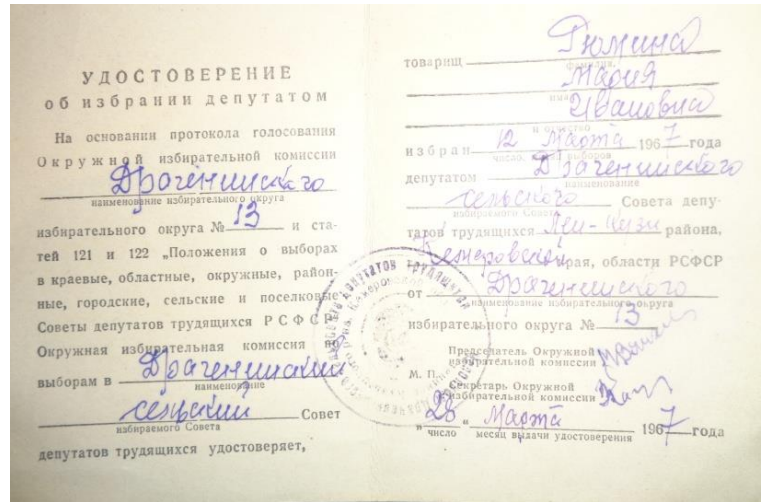 УДОСТОВЕРЕНИЕ
об избрании депутатом
На основании протокола голосования
Окружной избирательной комиссии
Драченинского
наименование избирательного округа
избирательного округа № 13 и ста-
тей 121 и 122 „Положения о выборах
в краевые, областные, окружные, район-
ные, городские, сельские и поселковые
Советы депутатов трудящихся РСФСР"
Окружная избирательная комиссия по
выборам в Драченинский
наименование
сельский Совет
избираемого Совета
депутатов трудящихся удостоверяет,
товарищ Тюмина
фамилия,
Мария
имя
Ивановна
и отчество
избран 12 Марта 1967 года
число, месяц выборов
депутатом Драченинского
наименование
сельского Совета депу-
избираемого Совета
татов трудящихся Лен-Кузн района,
Кемеровской края, области РСФСР
от Драченинского
наименование избирательного округа
избирательного округа № 13
Председатель Окружной
избирательной комиссии
М. П.
Секретарь Окружной
избирательной комиссии
„28" Марта 1967 года
число месяц выдачи удостоверения